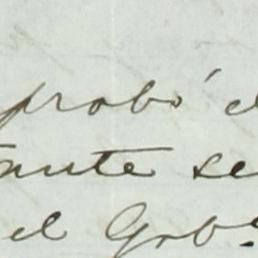 probó e
tante se
el Gob.